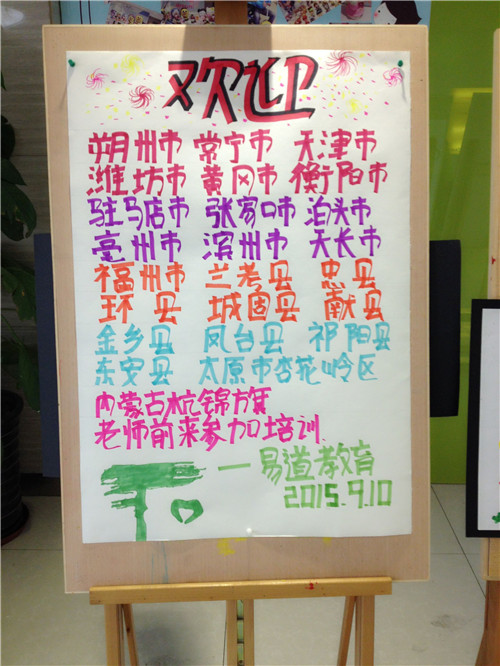 欢迎
朔州市 常宁市 天津市
潍坊市 黄冈市 衡阳市
驻马店市 张家口市 泊头市
亳州市 滨州市 天长市
福州市 兰考县 忠县
环县 城固县 献县
金乡县 凤台县 祁阳县
东安县 太原市杏花岭区
内蒙古杭锦旗
老师前来参加培训
—易道教育
2015.9.10